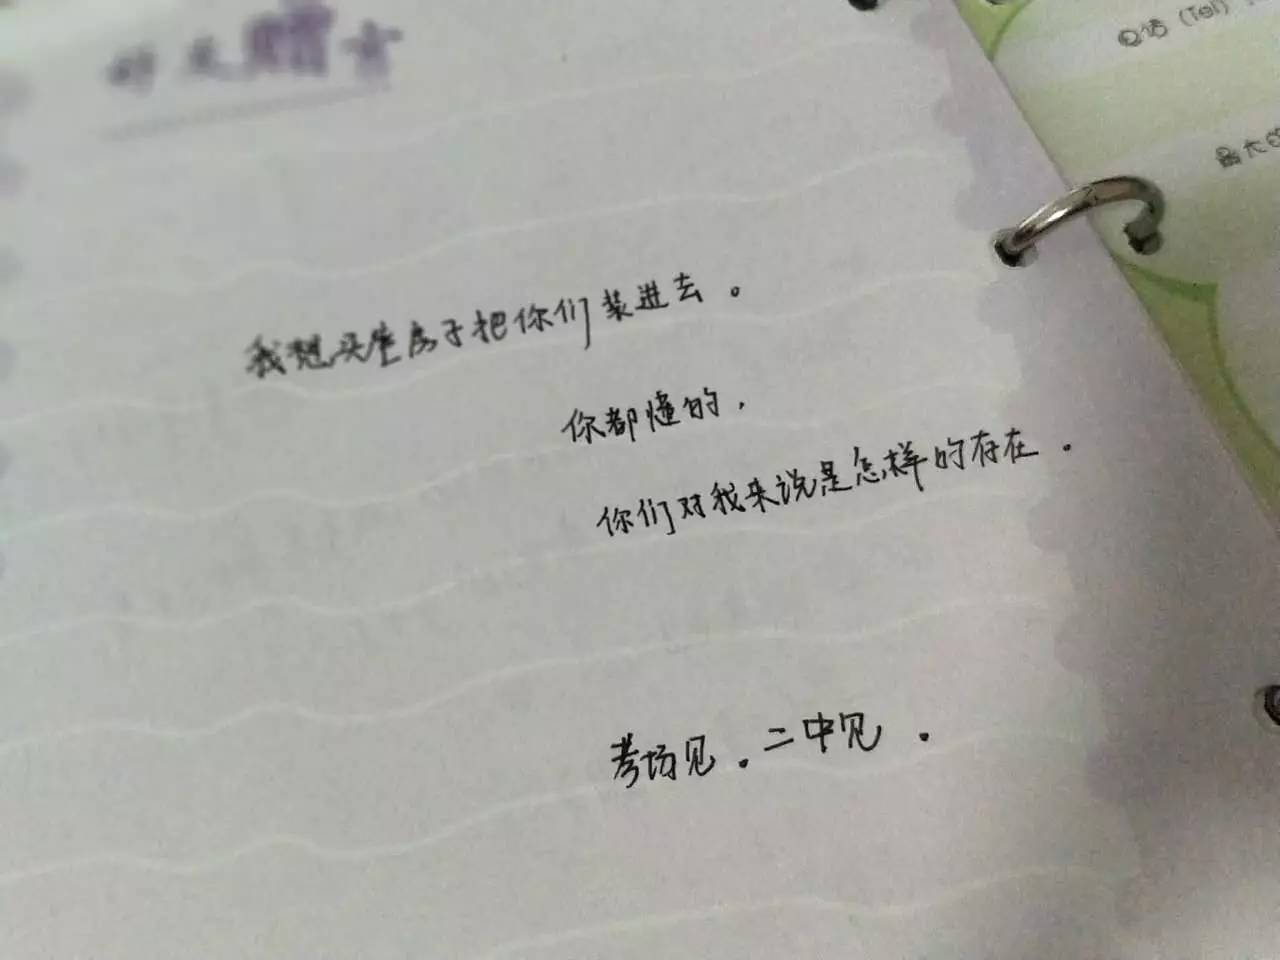 好友赠言
我想买座房子把你们装进去。
你都懂的，
你们对我来说是怎样的存在。
考场见。二中见。
电话（Tel）
最大的